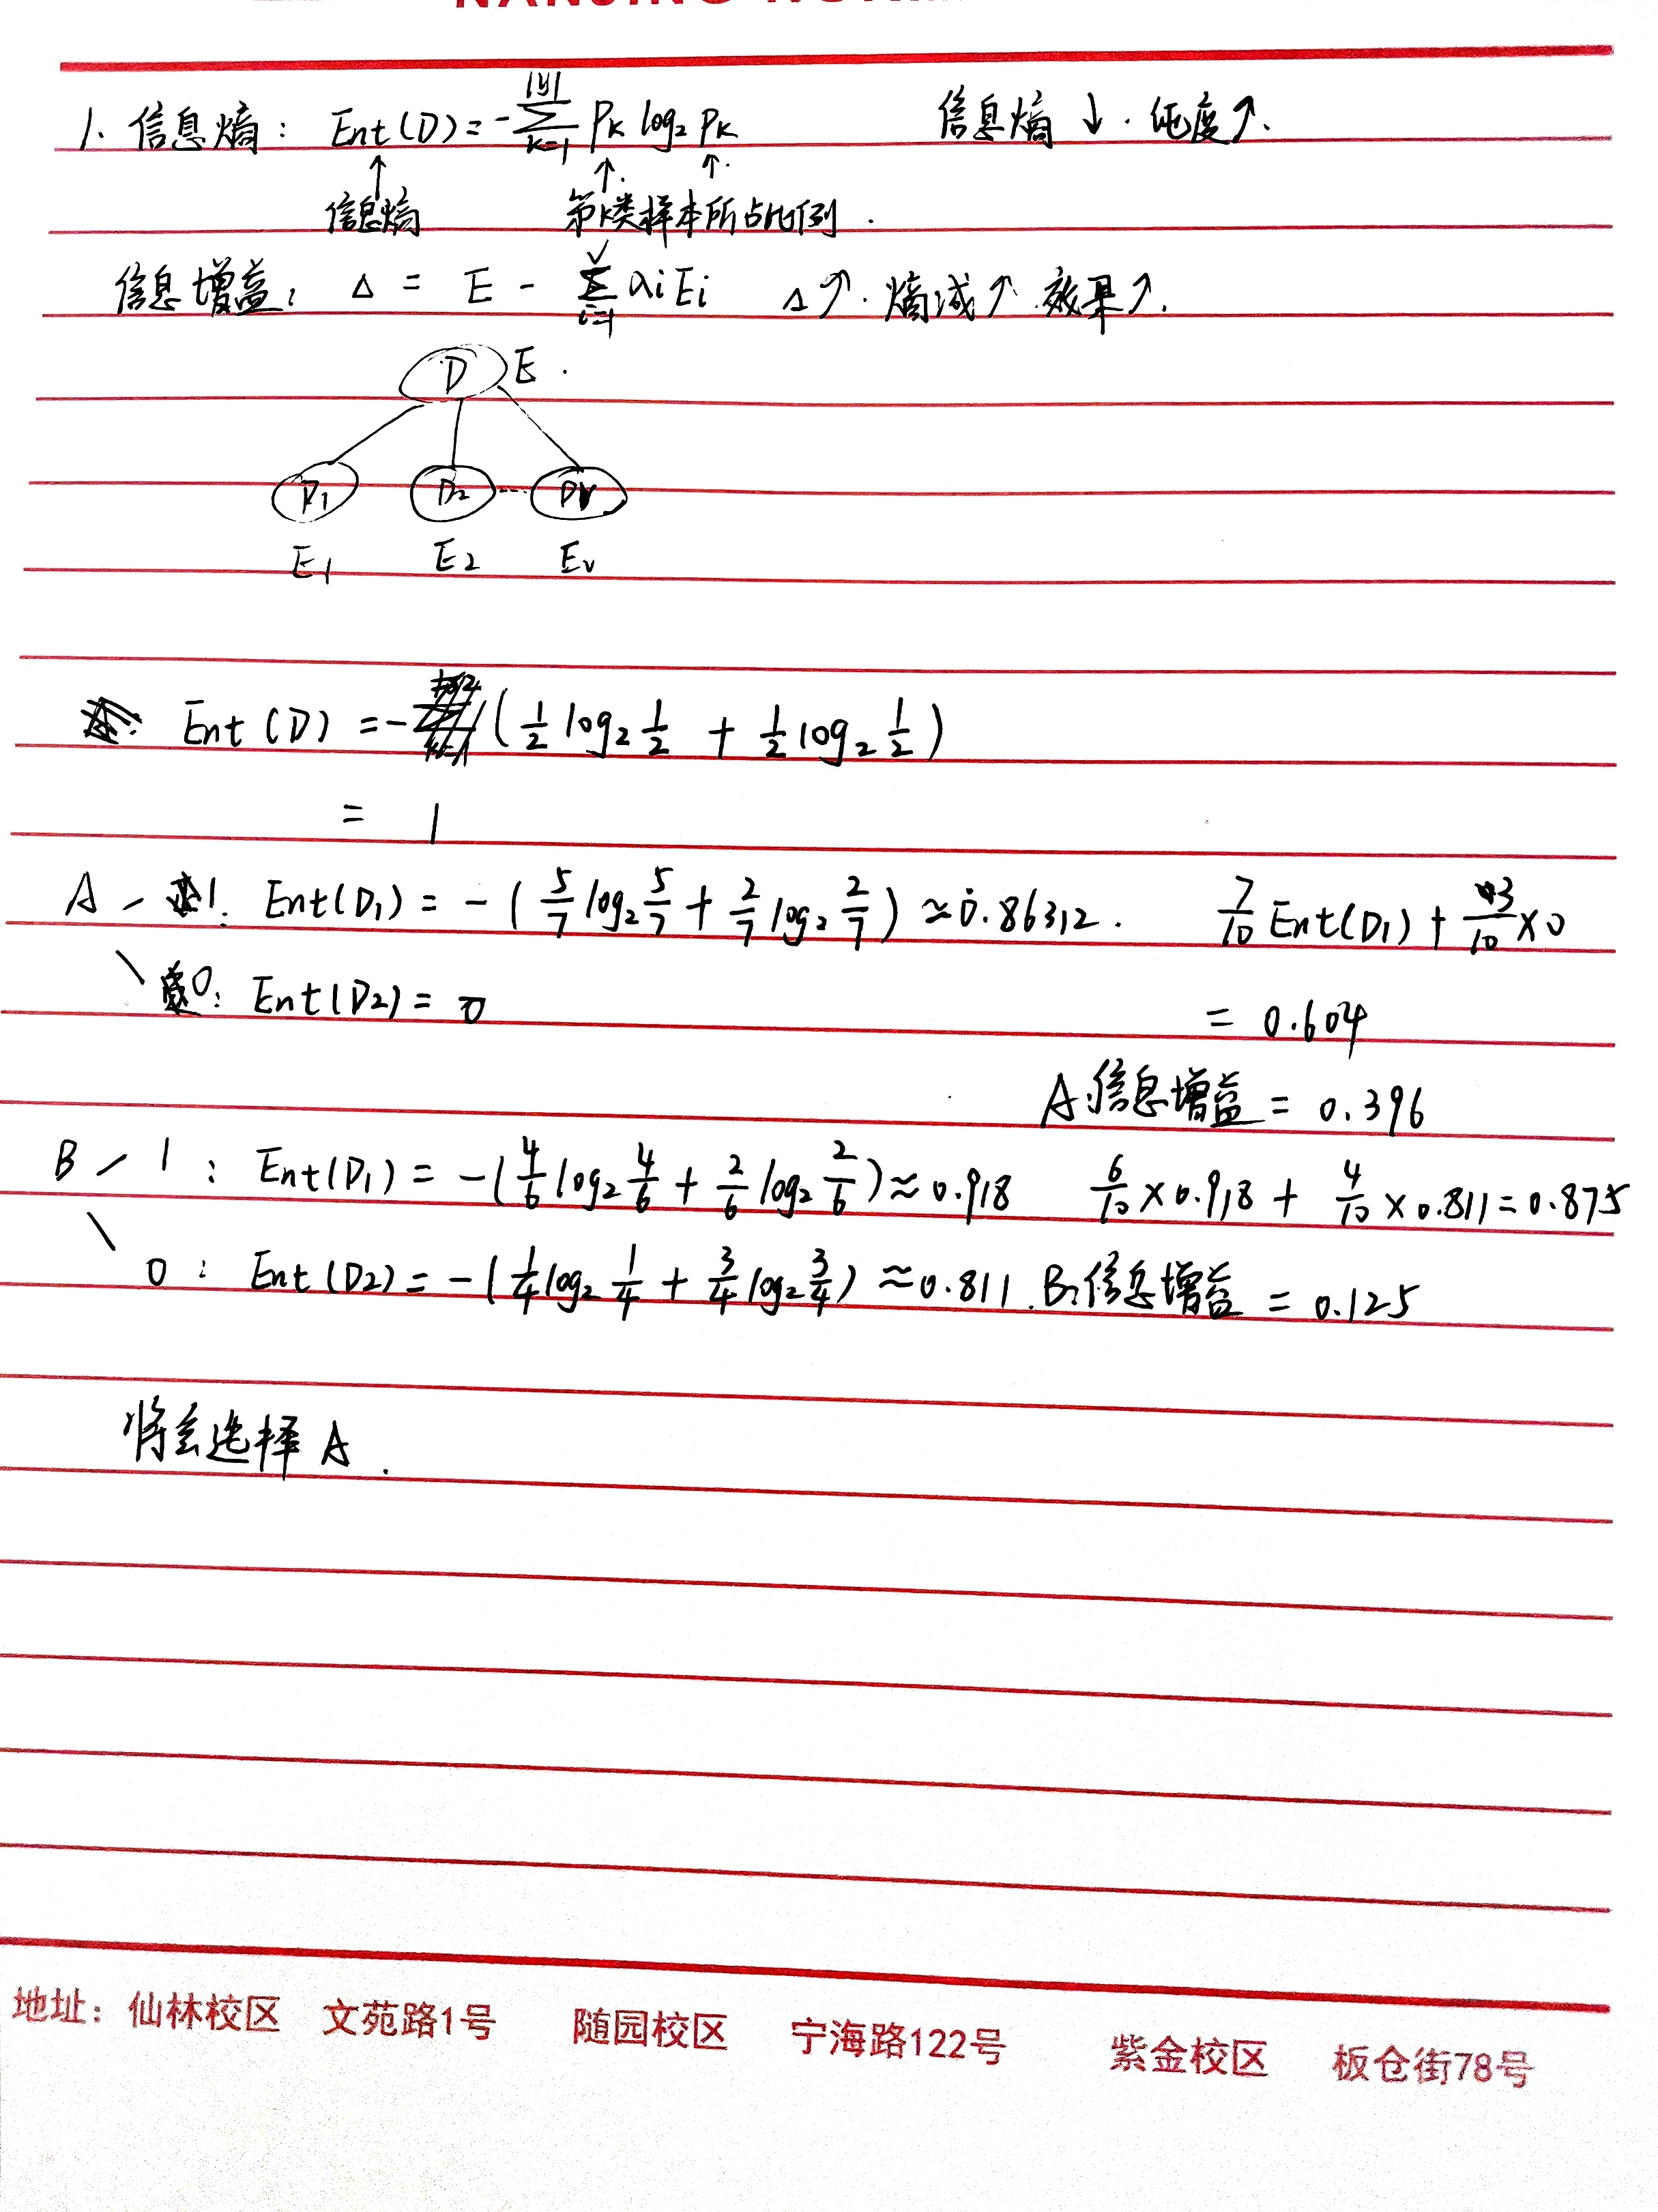 1. 信息熵: Ent(D)=-∑_{k=1}^{|y|} Pk log₂ Pk 信息熵↓. 纯度↑.
↑ ↑. ↑.
信息熵 第k类样本所占比例.
信息增益: Δ = E - ∑_{i=1}^{v} aiEi Δ↑. 熵减↑ 效果↑.
D E.
D1 D2 ... Dv
E1 E2 Ev
Ent(D) = -(1/2 log₂ 1/2 + 1/2 log₂ 1/2)
= 1
A 1: Ent(D1) = -(5/7 log₂ 5/7 + 2/7 log₂ 2/7) ≈ 0.86312. 7/10 Ent(D1) + 3/10 × 0
0: Ent(D2) = 0 = 0.604
A信息增益 = 0.396
B 1: Ent(D1) = -(4/6 log₂ 4/6 + 2/6 log₂ 2/6) ≈ 0.918 6/10 × 0.918 + 4/10 × 0.811 = 0.875
0: Ent(D2) = -(1/4 log₂ 1/4 + 3/4 log₂ 3/4) ≈ 0.811. B:信息增益 = 0.125
将会选择A.
地址: 仙林校区 文苑路1号 随园校区 宁海路122号 紫金校区 板仓街78号